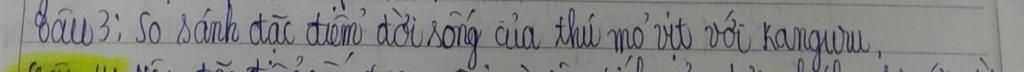 Câu 3: So sánh đặc điểm đời sống của thú mỏ vịt với Kanguru.